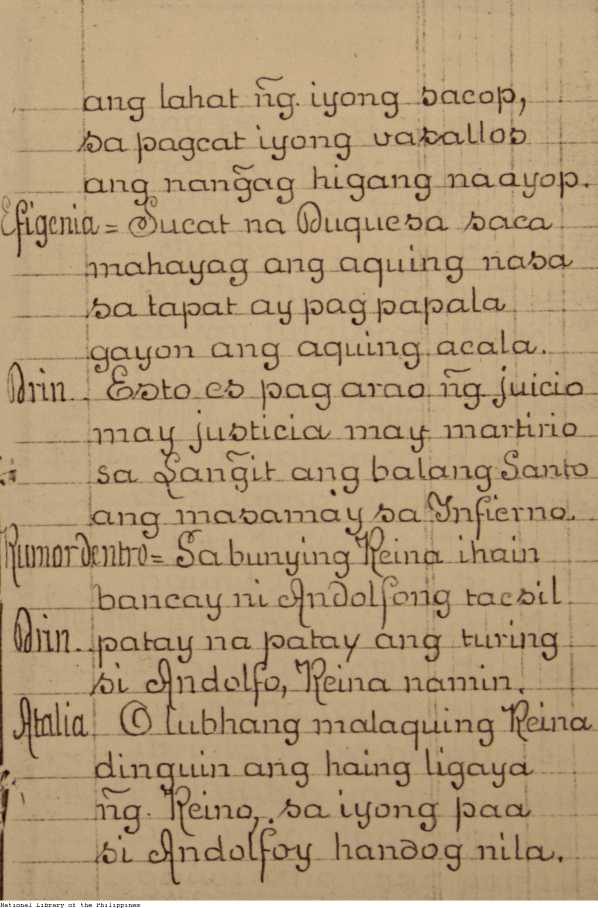 ang lahat n͠g. iyong sacop,
sa pagcat iyong vasallos
ang nang̃ag higang naayop.
Efigenia = Sucat na Duquesa saca
mahayag ang aquing nasa
sa tapat ay pag papala
gayon ang aquing acala.
Brin. Esto es pag arao n͠g juicio
may justicia may martirio
sa Lang̃it ang balang Santo
ang masamáy sa Ynfierno.
Rumor dentro = Sa bunying Reina ihain
bancay ni Andolfong tacsil
Brin. patay na patay ang turing
si Andolfo, Reina namin.
Atalia O lubhang malaquing Reina
dinguin ang haing ligaya
n͠g. Reino, sa iyong paa
si Andolfoy handog nila.
National Library of the Philippines